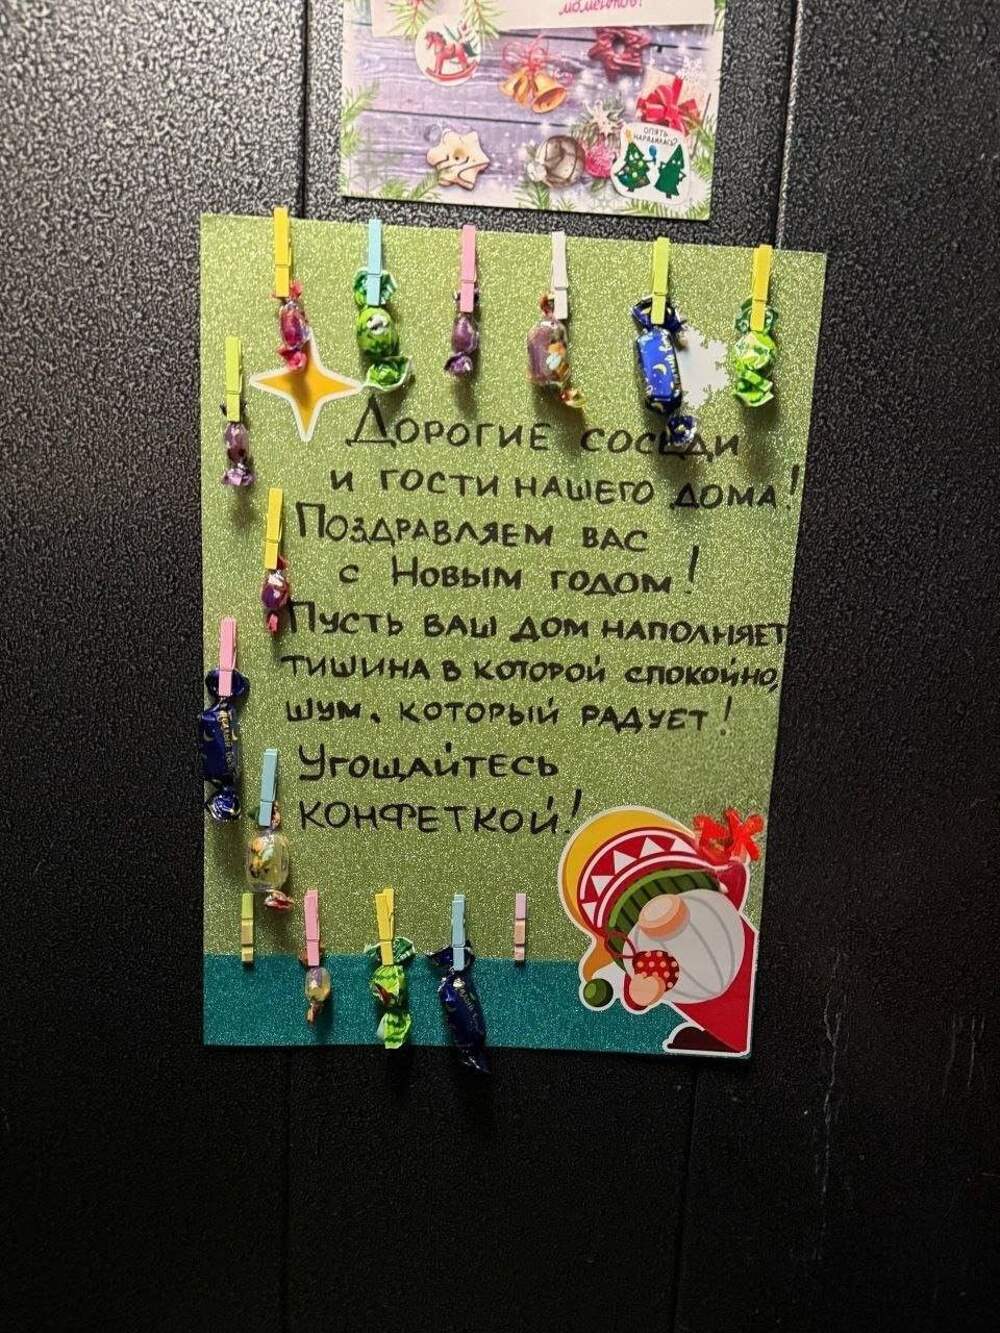 моментов!
ОПЯТЬ
НАРЯДИЛАСЬ?
ДОРОГИЕ СОСЕДИ
И ГОСТИ НАШЕГО ДОМА!
ПОЗДРАВЛЯЕМ ВАС
С НОВЫМ ГОДОМ!
ПУСТЬ ВАШ ДОМ НАПОЛНЯЕТ
ТИШИНА В КОТОРОЙ СПОКОЙНО,
ШУМ, КОТОРЫЙ РАДУЕТ!
УГОЩАЙТЕСЬ
КОНФЕТКОЙ!